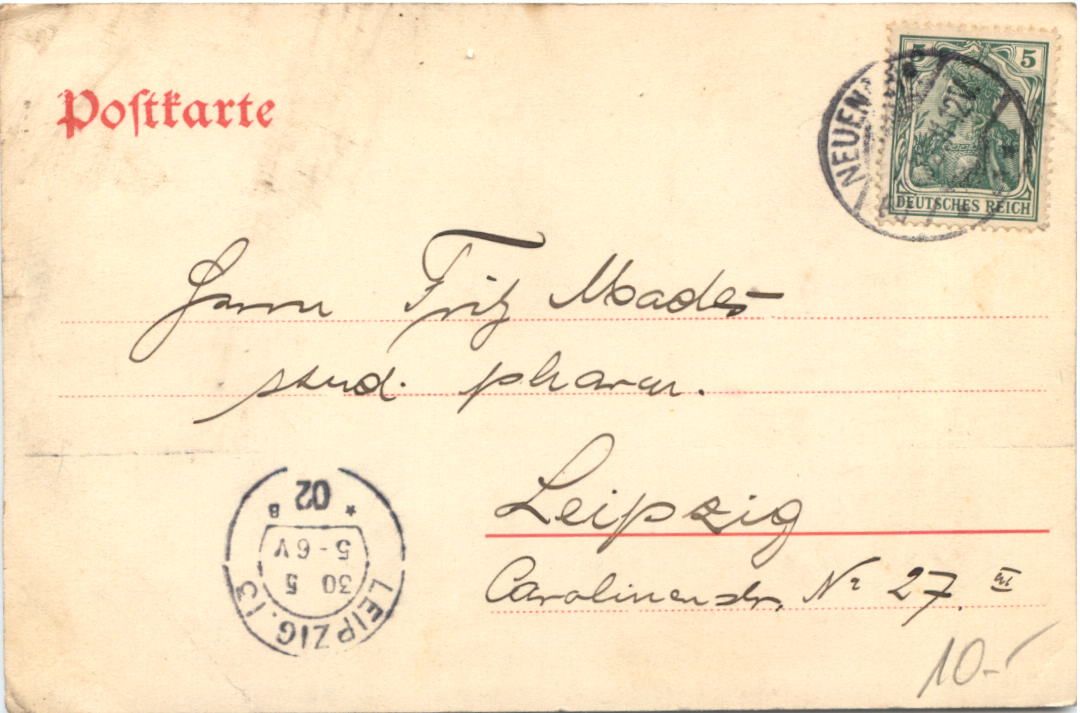 Postkarte
5 5
NEUEN
DEUTSCHES REICH
Herrn Fritz Mades
stud. pharm.
Leipzig
Carolinenstr. Nr 27. III
LEIPZIG. 13
30 5
5-6V
* 02 B
10.-